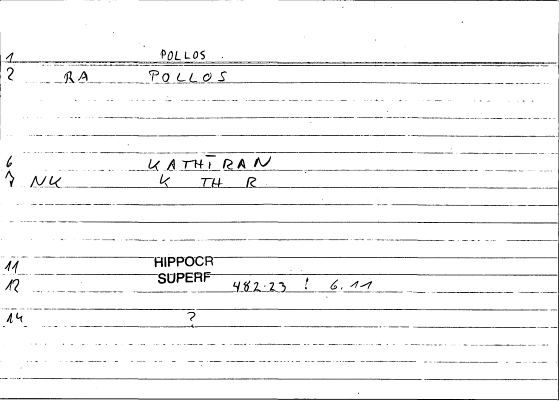 1 POLLOS
2 RA POLLOS
6 KATHĪRAN
7 NK K TH R
11 HIPPOCR
12 SUPERF 482.23 ! 6.11
14 ?